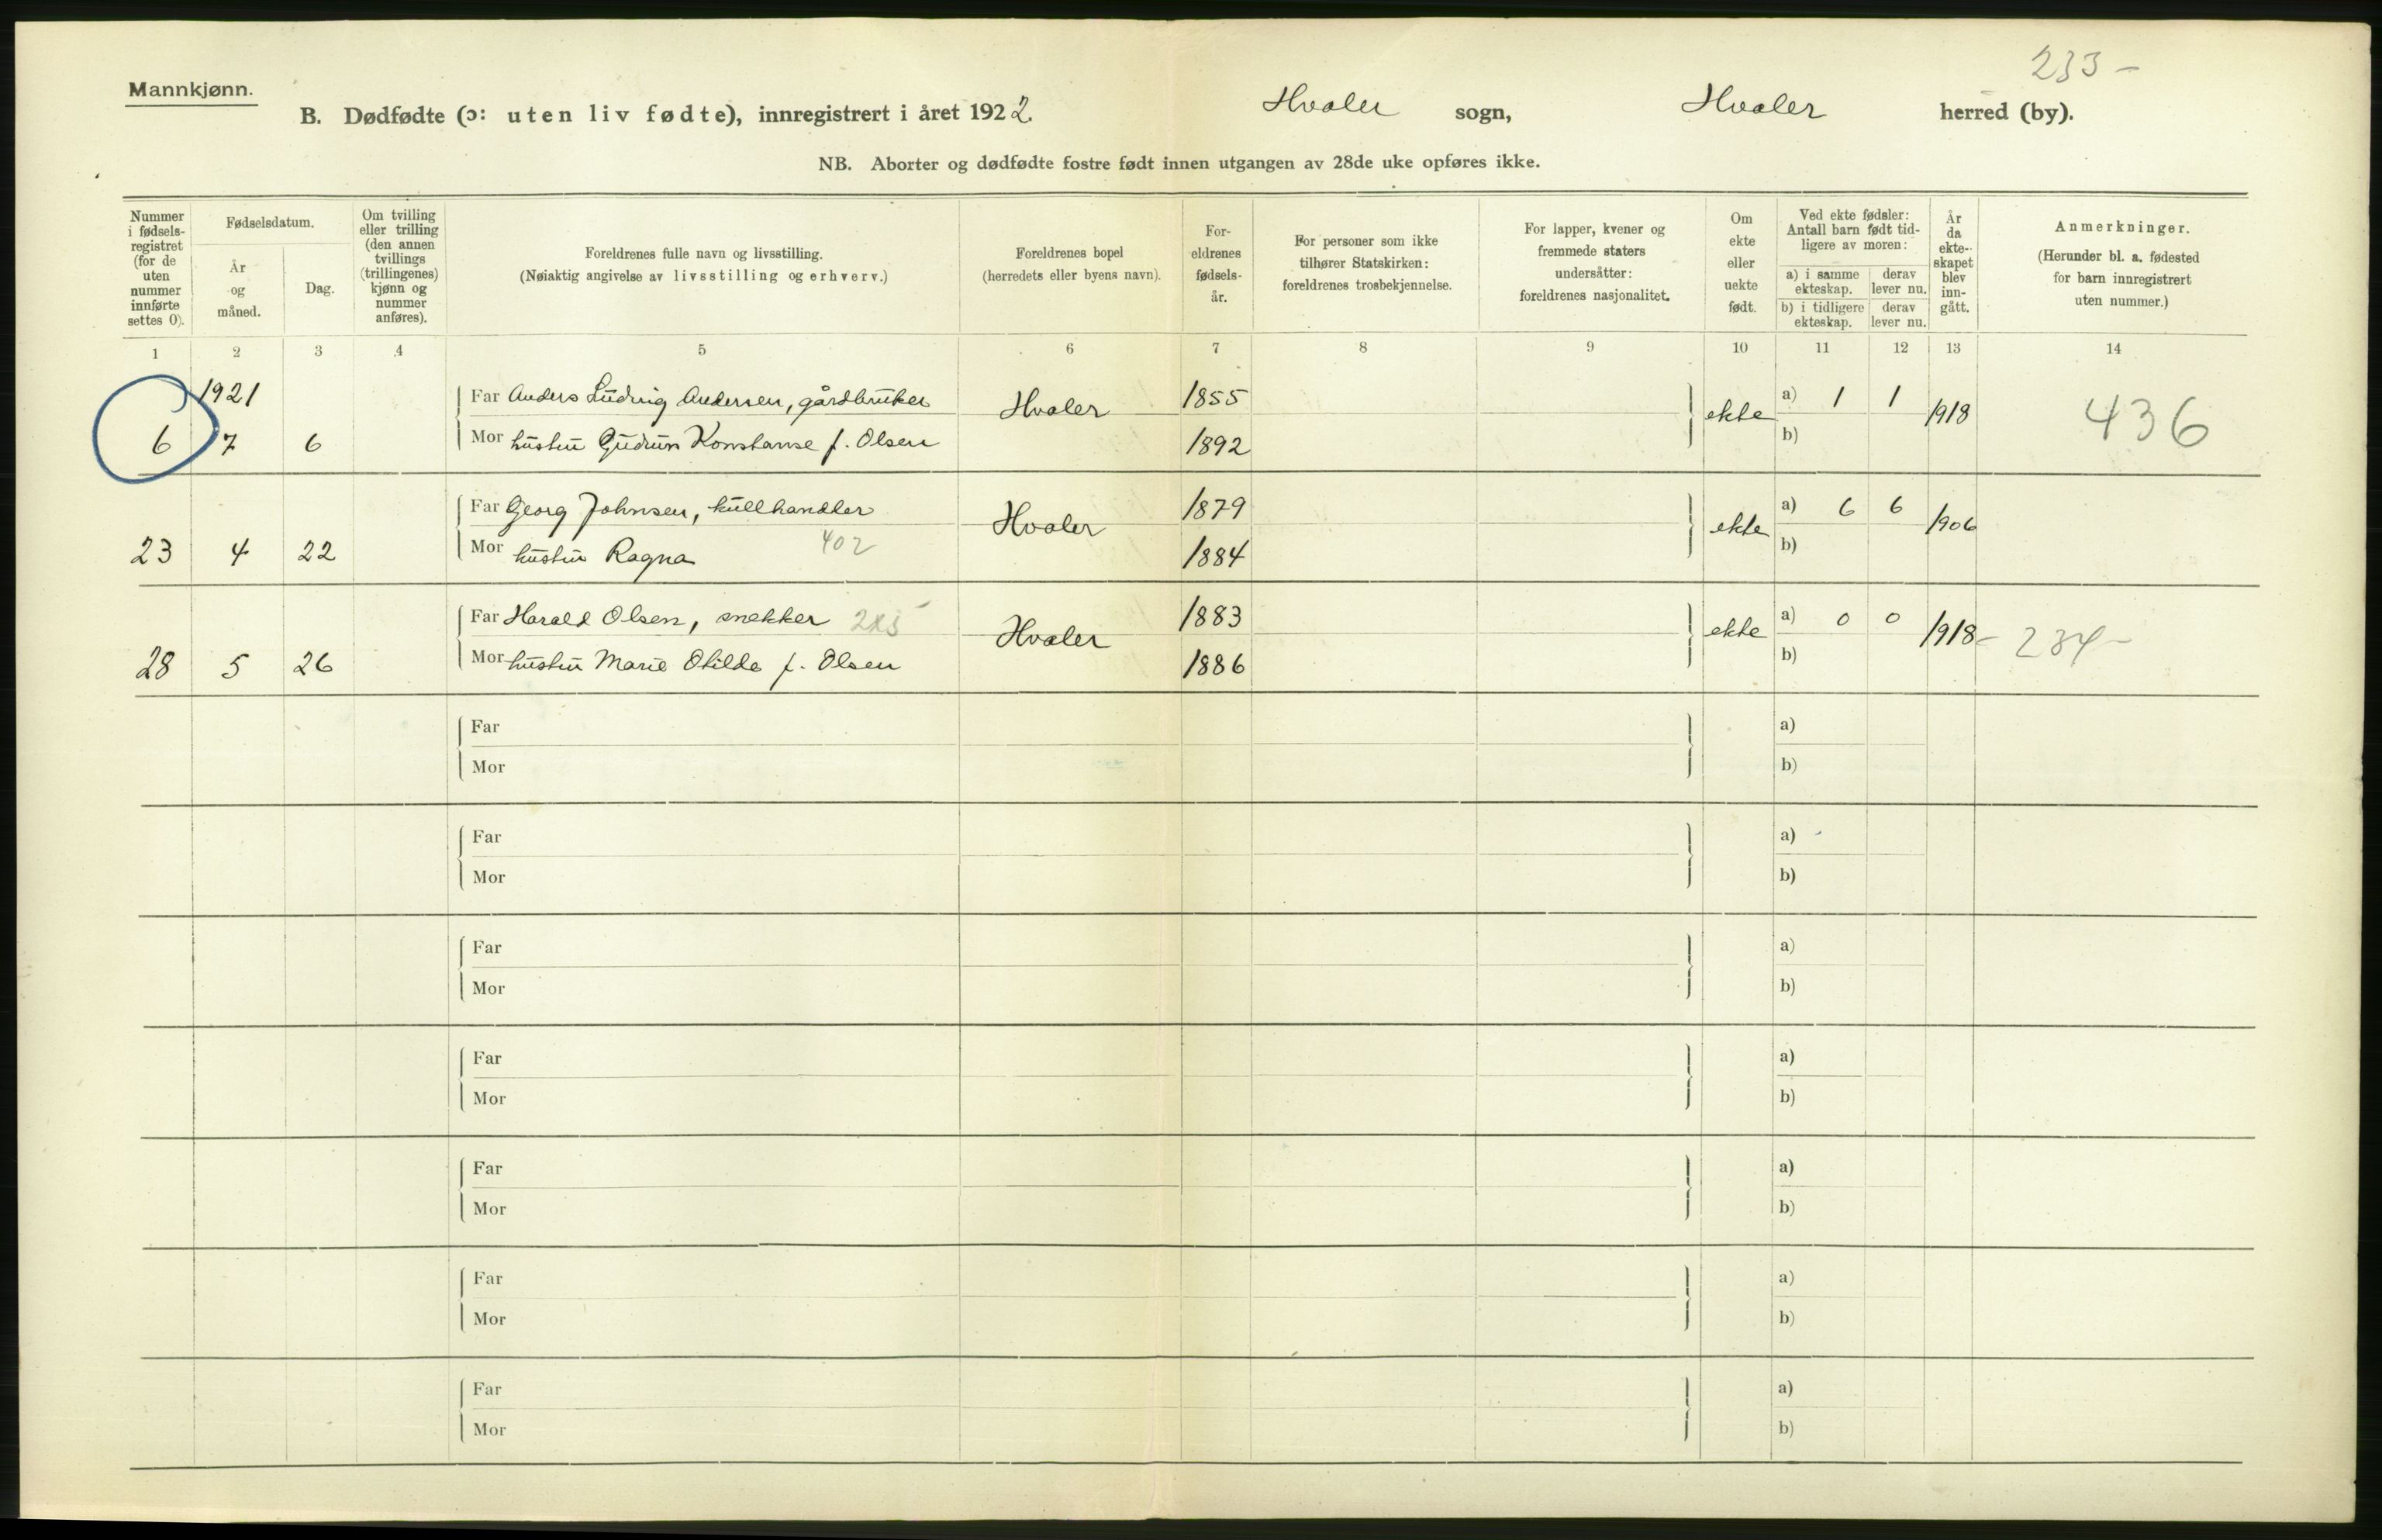 233 -
Mannkjønn.
B. Dødfødte (ɔ: uten liv fødte), innregistrert i året 1922. Hvaler sogn, Hvaler herred (by).
NB. Aborter og dødfødte fostre født innen utgangen av 28de uke opføres ikke.
Nummer i fødsels-registret (for de uten nummer innførte settes 0).
Fødselsdatum.
År og måned.
Dag.
Om tvilling eller trilling (den annen tvillings (trillingenes) kjønn og nummer anføres).
Foreldrenes fulle navn og livsstilling.
(Nøiaktig angivelse av livsstilling og erhverv.)
Foreldrenes bopel
(herredets eller byens navn).
For-eldrenes fødsels-år.
For personer som ikke tilhører Statskirken: foreldrenes trosbekjennelse.
For lapper, kvener og fremmede staters undersåtter: foreldrenes nasjonalitet.
Om ekte eller uekte født.
Ved ekte fødsler: Antall barn født tid-ligere av moren:
a) i samme ekteskap. derav lever nu.
b) i tidligere ekteskap. derav lever nu.
År da ekte-skapet blev inn-gått.
Anmerkninger.
(Herunder bl. a. fødested for barn innregistrert uten nummer.)
1 2 3 4 5 6 7 8 9 10 11 12 13 14
1921 Far Anders Ludvig Andersen, gårdbruker Hvaler 1855 ekte a) 1 1 1918 436
6 7 6 Mor hustru Gudrun Konstanse f. Olsen 1892 b)
Far Georg Johnsen, kullhandler Hvaler 1879 ekte a) 6 6 1906
23 4 22 Mor hustru Ragna 402 1884 b)
Far Harald Olsen, snekker Hvaler 1883 ekte a) 0 0 1918 - 234 -
28 5 26 Mor hustru Marie Otilde f. Olsen 1886 b)
Far a)
Mor b)
Far a)
Mor b)
Far a)
Mor b)
Far a)
Mor b)
Far a)
Mor b)
Far a)
Mor b)
Far a)
Mor b)